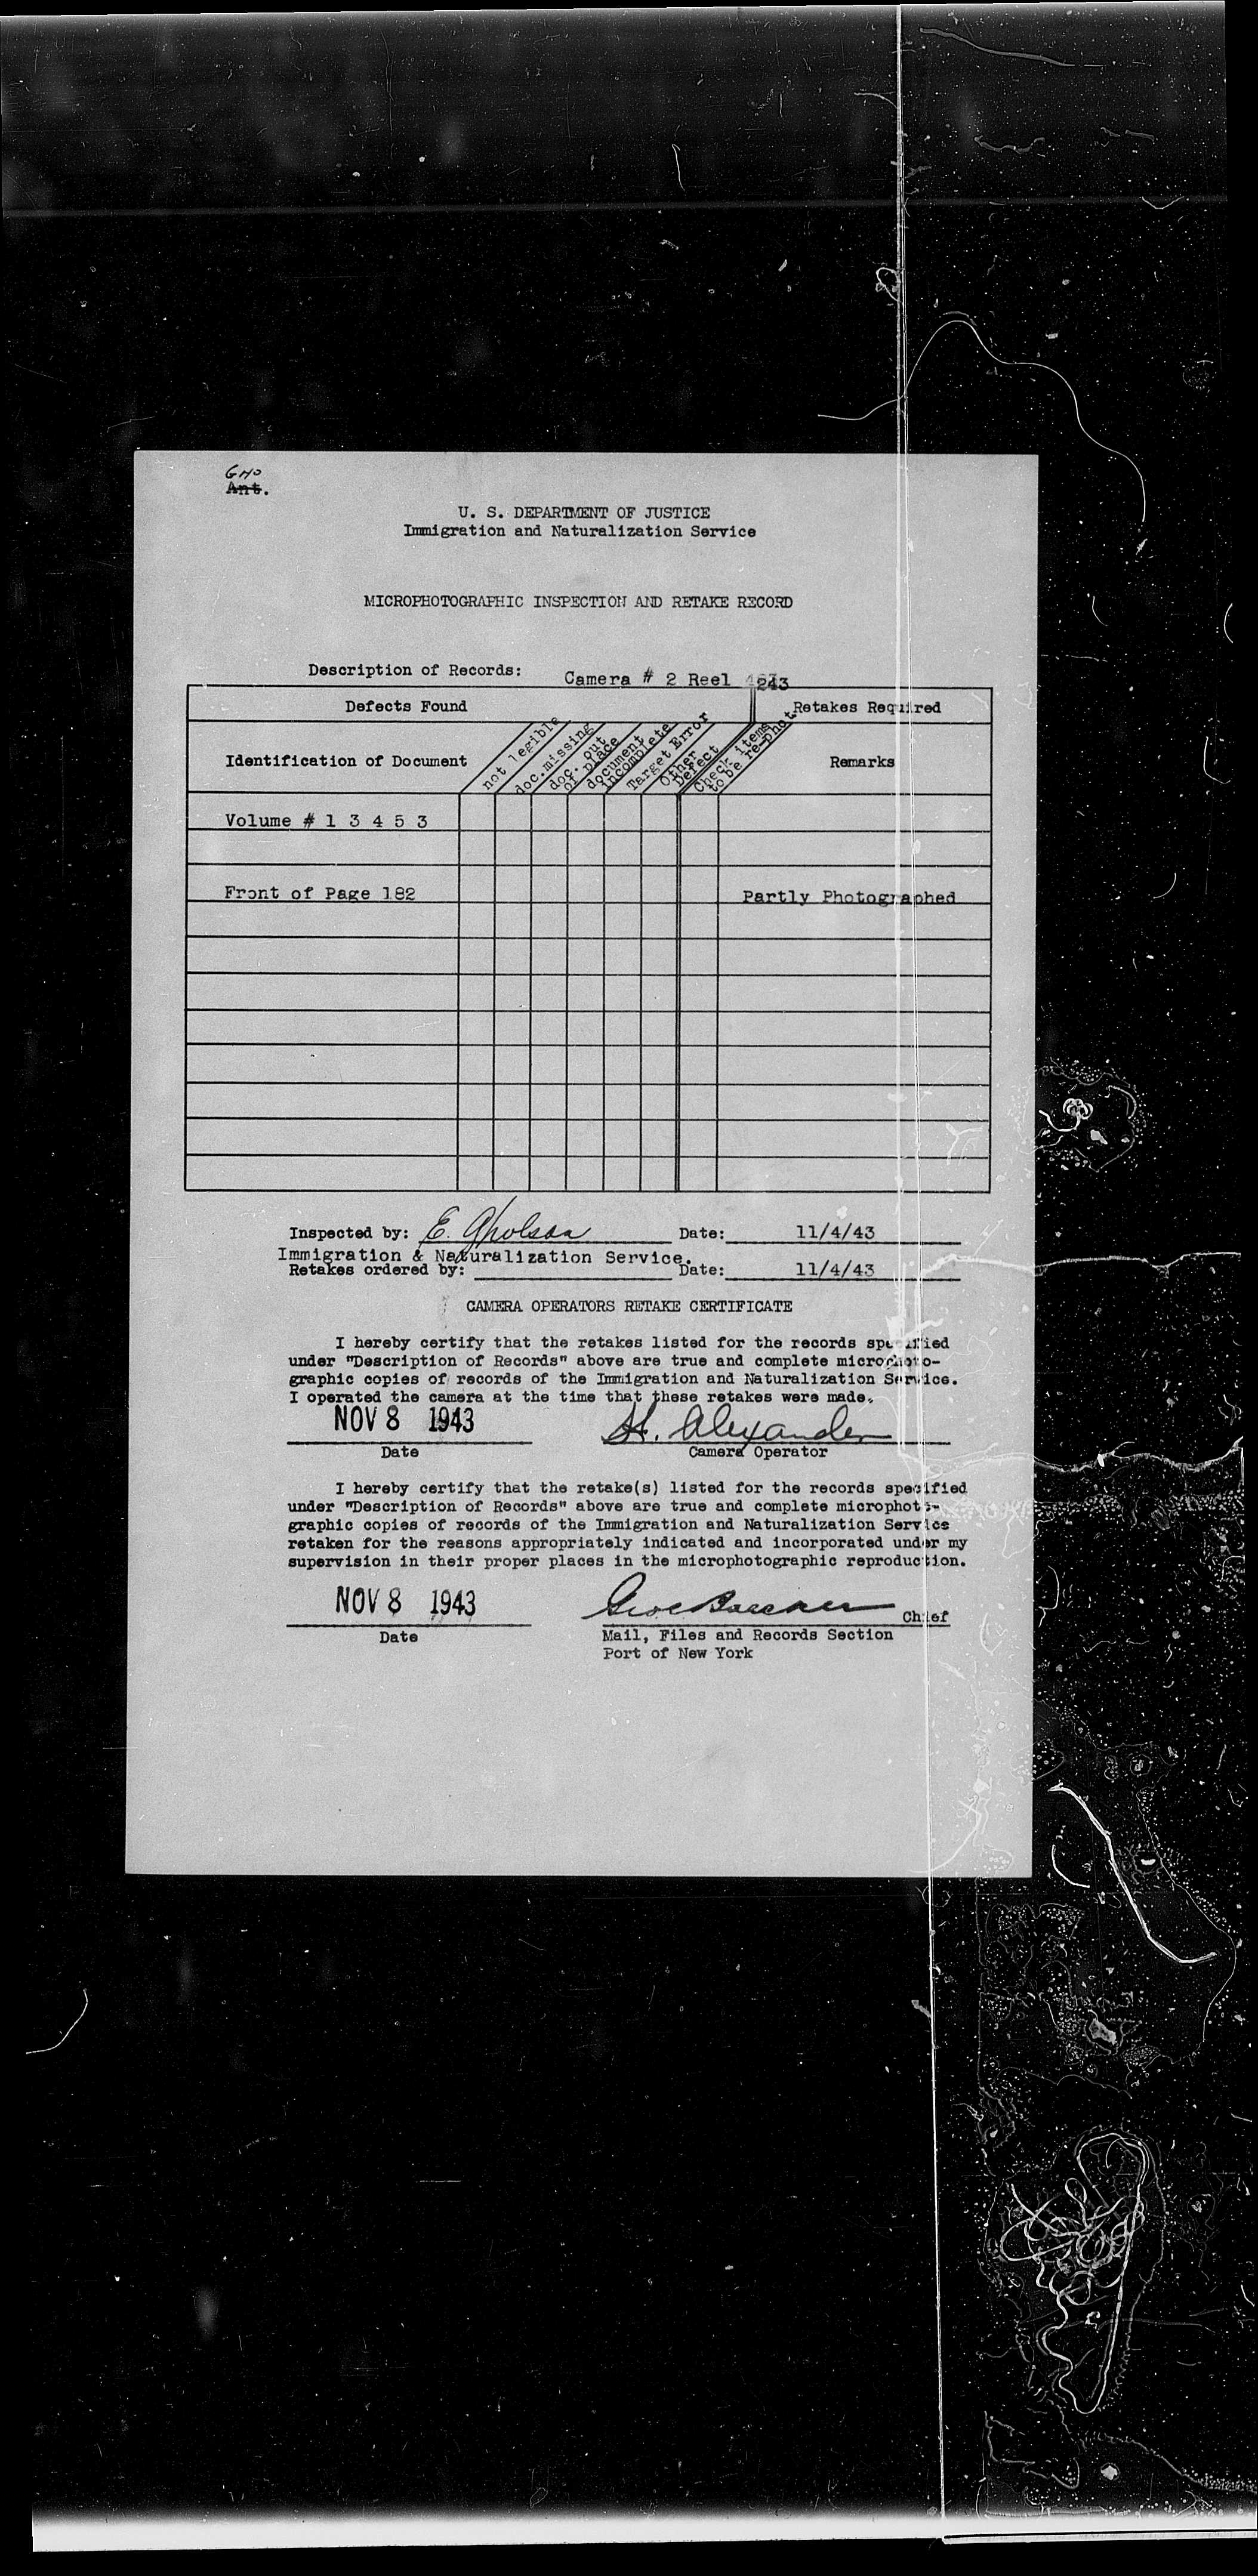 GHO
Ant.
U. S. DEPARTMENT OF JUSTICE
Immigration and Naturalization Service
MICROPHOTOGRAPHIC INSPECTION AND RETAKE RECORD
Description of Records: Camera # 2 Reel 243
Defects Found Retakes Required
Identification of Document not legible doc.missing doc. out of place document incomplete Target Error Other Defect Check items to be re-phot. Remarks
Volume # 1 3 4 5 3
Front of Page 182 Partly Photographed
Inspected by: E. Gholson Date: 11/4/43
Immigration & Naturalization Service.
Retakes ordered by: Date: 11/4/43
CAMERA OPERATORS RETAKE CERTIFICATE
I hereby certify that the retakes listed for the records specified
under "Description of Records" above are true and complete microphoto-
graphic copies of records of the Immigration and Naturalization Service.
I operated the camera at the time that these retakes were made.
NOV 8 1943 H. Alexander
Date Camera Operator
I hereby certify that the retake(s) listed for the records specified
under "Description of Records" above are true and complete microphoto-
graphic copies of records of the Immigration and Naturalization Service
retaken for the reasons appropriately indicated and incorporated under my
supervision in their proper places in the microphotographic reproduction.
NOV 8 1943 Chief
Date Mail, Files and Records Section
Port of New York